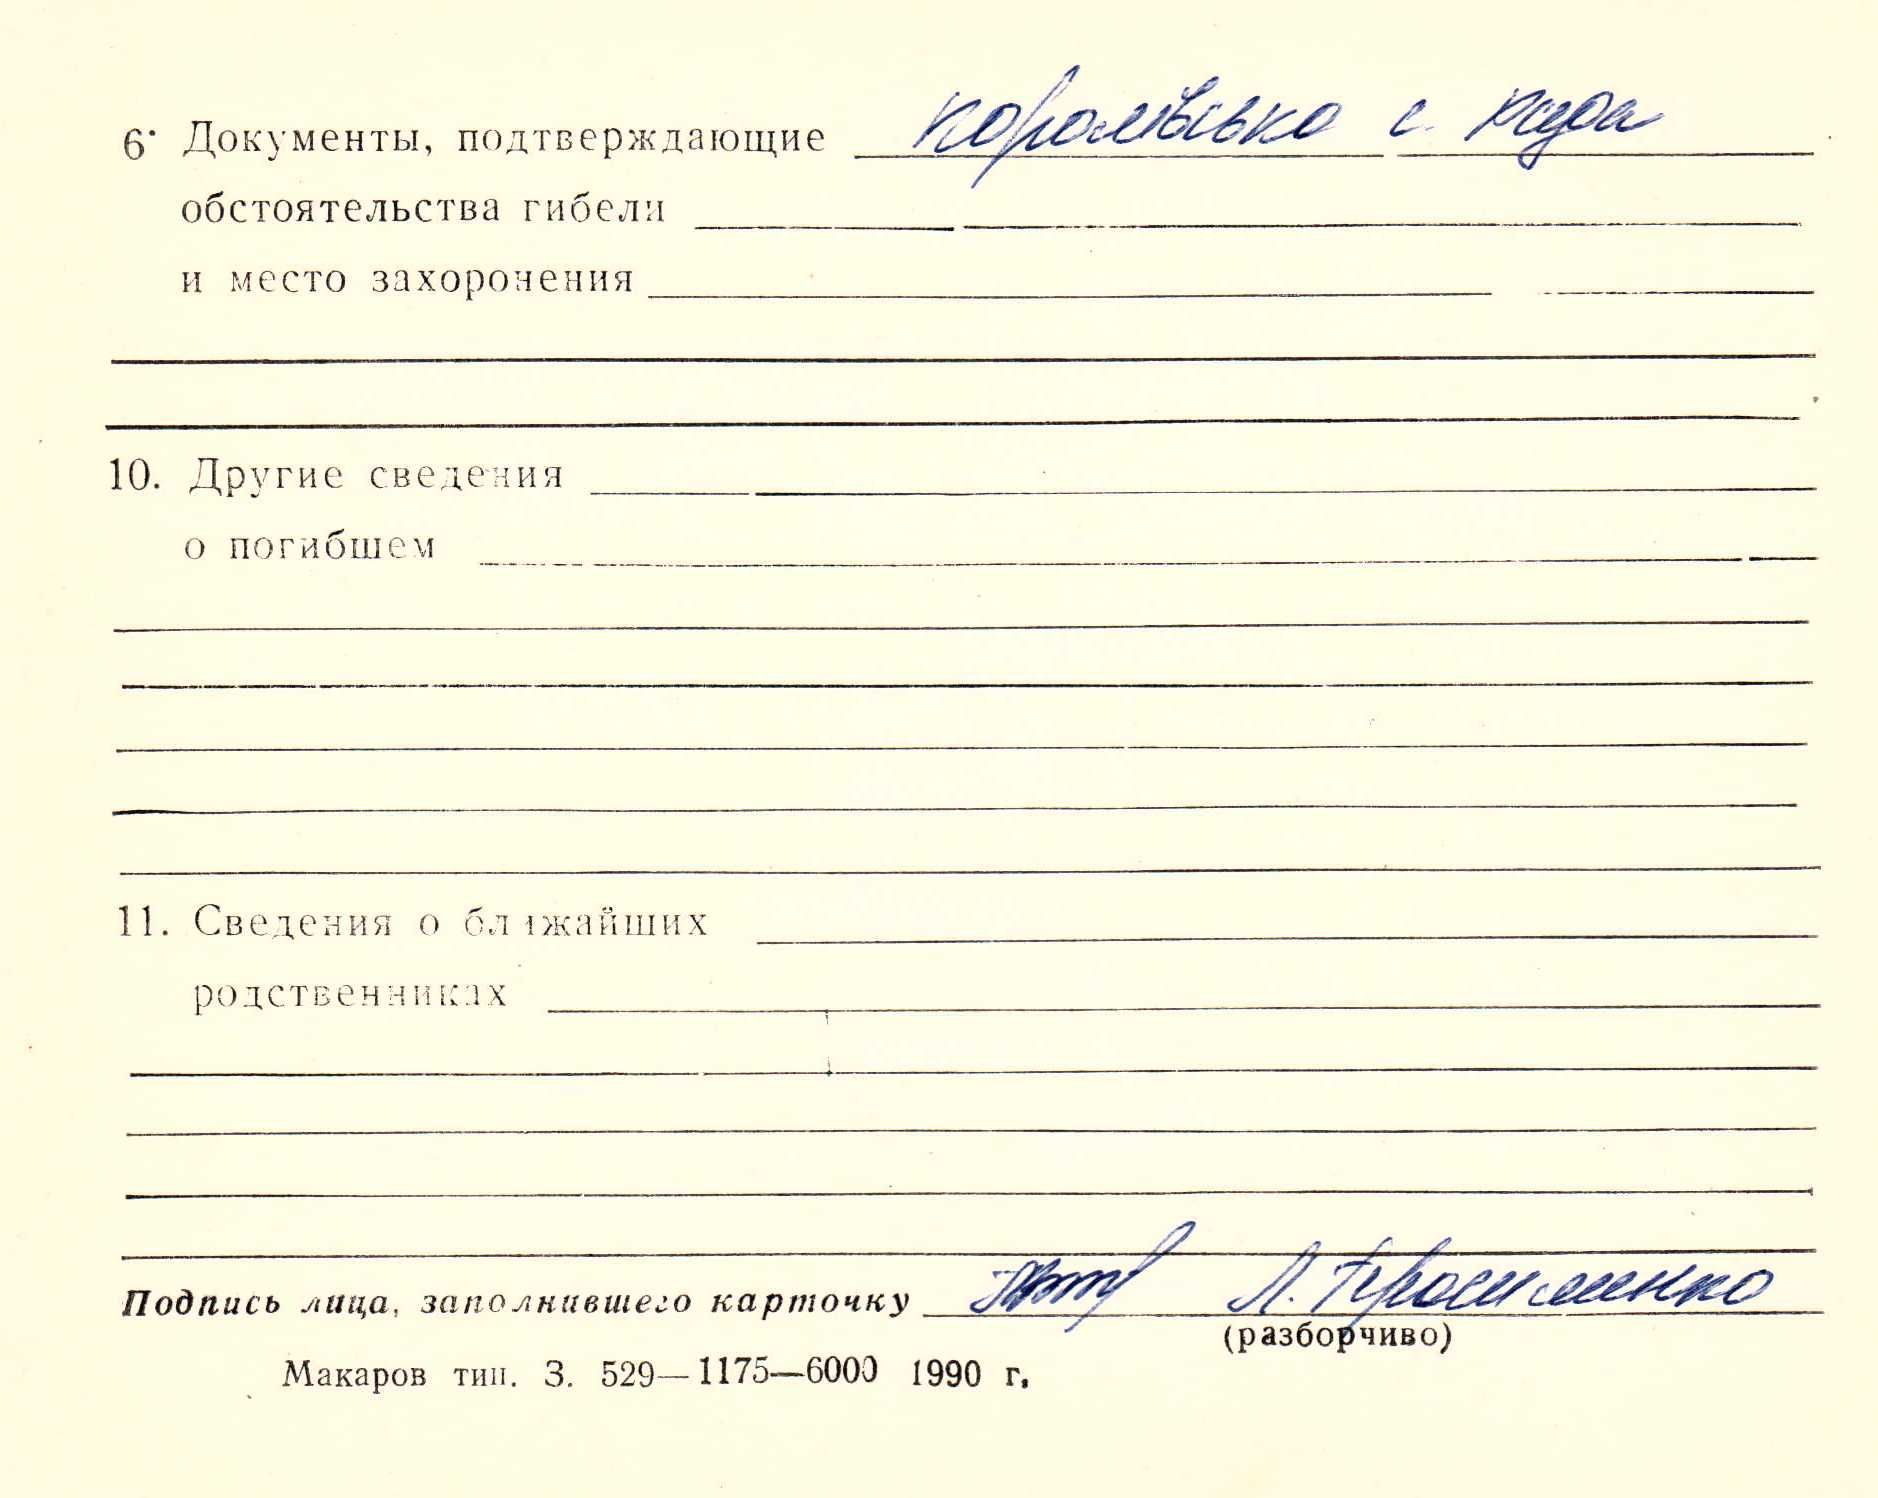 6. Документы, подтверждающие Королівська с. рада
обстоятельства гибели
и место захоронения
10. Другие сведения
о погибшем
11. Сведения о ближайших
родственниках
Подпись лица, заполнившего карточку Л.
(разборчиво)
Макаров тип. З. 529—1175—6000 1990 г.